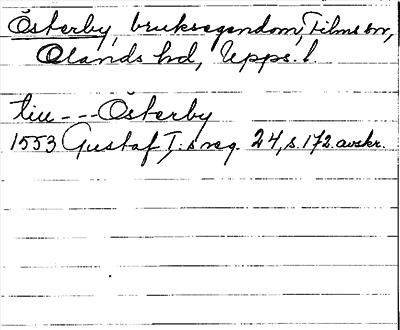 Österby, bruksegendom, Films sn,
Olands hd, Upps. l.
till --- Österby
1553 Gustaf I:s reg. 24, s. 172. avskr.